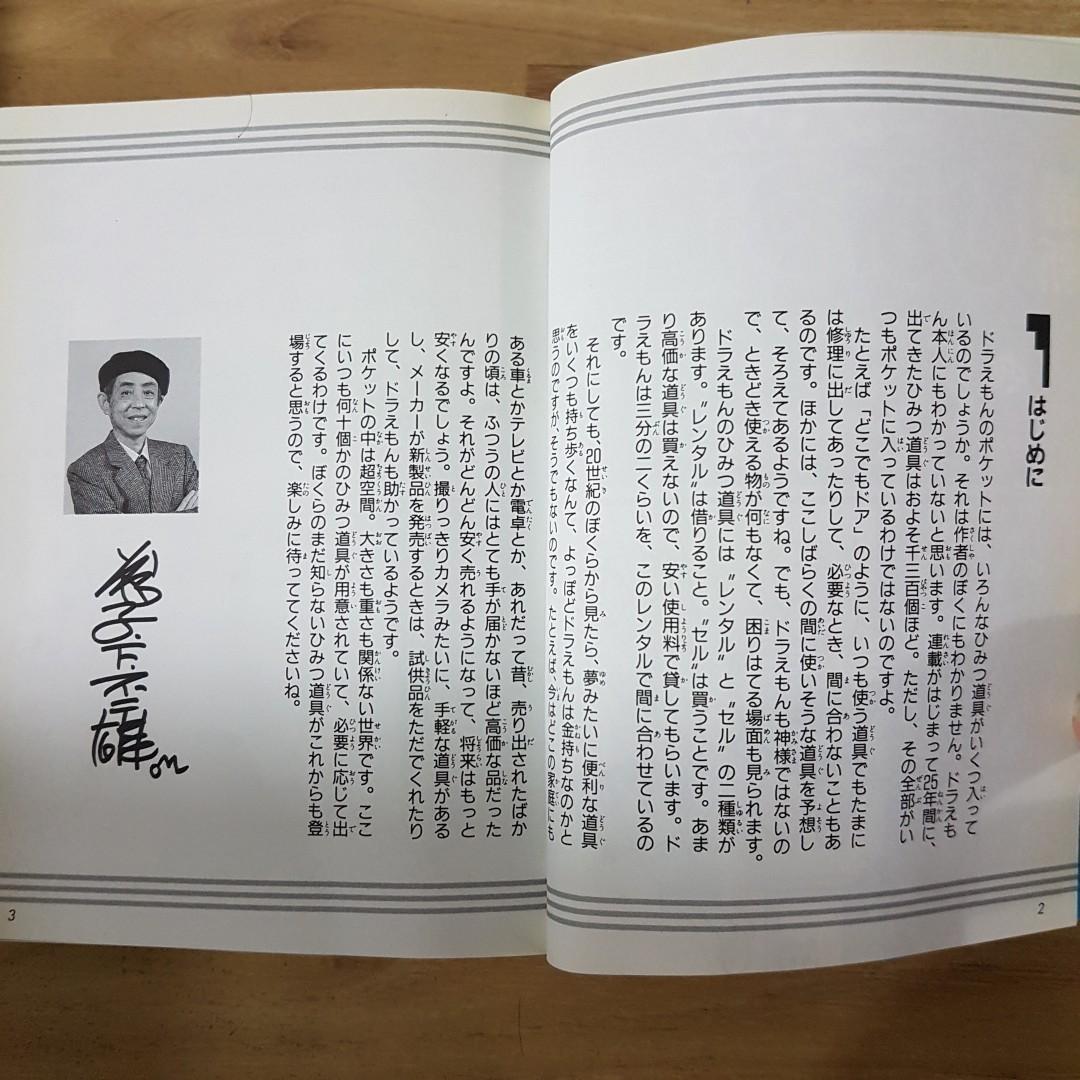 はじめに
ドラえもんのポケットには、いろんなひみつ道具がいくつ入って
いるのでしょうか。それは作者のぼくにもわかりません。ドラえも
ん本人にもわかっていないと思います。連載がはじまって25年間に、
出てきたひみつ道具はおよそ千三百個ほど。ただし、その全部がい
つもポケットに入っているわけではないのですよ。
たとえば「どこでもドア」のように、いつも使う道具でもたまに
は修理に出してあったりして、必要なとき、間に合わないこともあ
るのです。ほかには、ここしばらくの間に使いそうな道具を予想し
て、そろえてあるようですね。でも、ドラえもんも神様ではないの
で、ときどき使える物が何もなくて、困りはてる場面も見られます。
ドラえもんのひみつ道具には〝レンタル〟と〝セル〟の二種類が
あります。〝レンタル〟は借りること。〝セル〟は買うことです。あま
り高価な道具は買えないので、安い使用料で貸してもらいます。ド
ラえもんは三分の二くらいを、このレンタルで間に合わせているの
です。
それにしても、20世紀のぼくらから見たら、夢みたいに便利な道具
をいくつも持ち歩くなんて、よっぽどドラえもんは金持ちなのかと
思うのですが、そうでもないのです。たとえば、今はどこの家庭にも
2
ある車とかテレビとか電卓とか、あれだって昔、売り出されたばか
りの頃は、ふつうの人にはとても手が届かないほど高価な品だった
んですよ。それがどんどん安く売れるようになって、将来はもっと
安くなるでしょう。撮りっきりカメラみたいに、手軽な道具がある
し、メーカーが新製品を発売するときは、試供品をただでくれたり
して、ドラえもんも助かっているようです。
ポケットの中は超空間。大きさも重さも関係ない世界です。ここ
にいつも何十個かのひみつ道具が用意されていて、必要に応じて出
てくるわけです。ぼくらのまだ知らないひみつ道具がこれからも登
場すると思うので、楽しみに待っててくださいね。
3